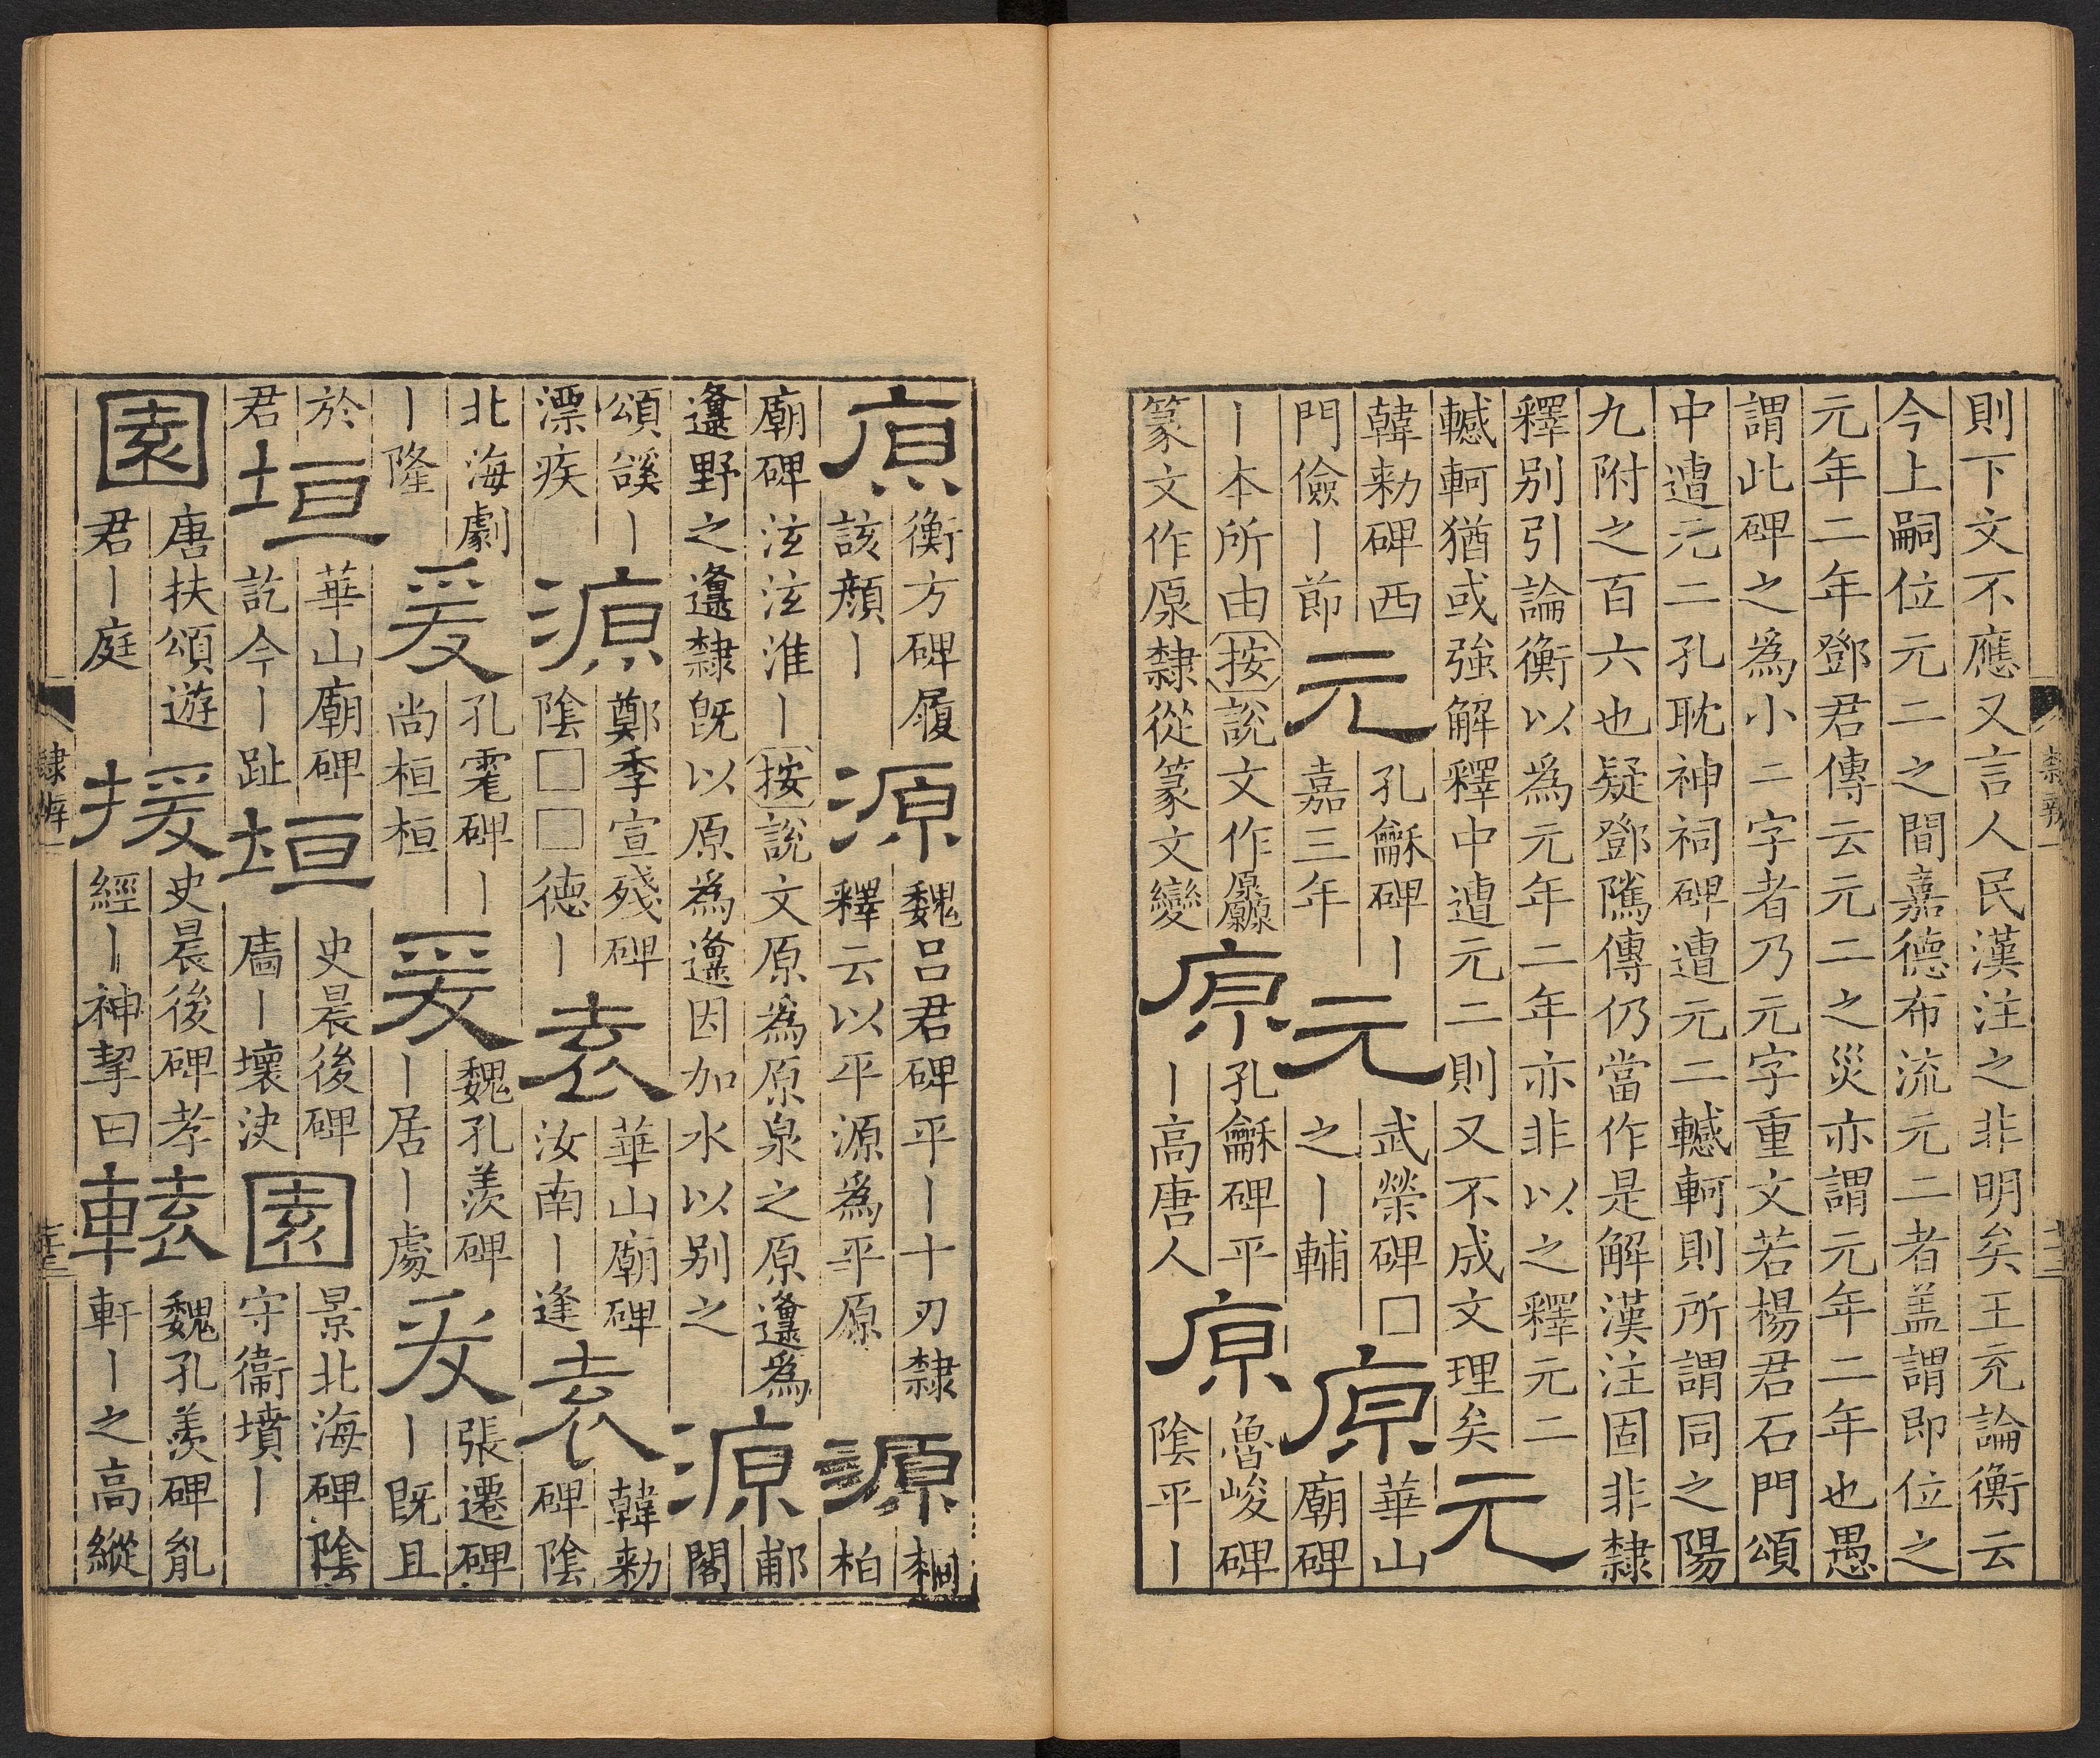 則下文不應又言人民漢注之非明矣王充論衡云
今上嗣位元二之間嘉德布流元二者盖謂即位之
元年二年鄧君傳云元二之災亦謂元年二年也愚
謂此碑之爲小二字者乃元字重文若楊君石門頌
中遭元二孔耽神祠碑遭元二轗軻則所謂同之陽
九附之百六也疑鄧騭傳仍當作是解漢注固非隸
釋别引論衡以爲元年二年亦非以之釋元二
轗軻猶或強解釋中遭元二則又不成文理矣
元
韓勑碑西
門儉〡節
元
孔龢碑〡
嘉三年
元
武榮碑□
之〡輔
原
華山
廟碑
〡本所由按說文作厵
篆文作原隸從篆文變
原
孔龢碑平
〡高唐人
原
魯峻碑
陰平〡
隸辨一
十三
原
衡方碑履
該顔〡
源
魏吕君碑平〡十刃隸
釋云以平源爲平原
源
桐
柏
廟碑泫泫淮〡按說文原爲原泉之原邍爲
邍野之邍隸旣以原爲邍因加水以别之
源
郙
閣
頌谿〡
漂疾
源
鄭季宣殘碑
陰□□德〡
袁
華山廟碑
汝南〡逢
袁
韓勑
碑陰
北海劇
〡隆
爰
孔 碑〡
尚桓桓
爰
魏孔羨碑
〡居〡處
爰
張遷碑
〡既且
於
君
垣
華山廟碑
訖今〡趾
垣
史晨後碑
牆〡壞決
園
景北海碑陰
守衞墳〡
園
唐扶頌遊
君〡庭
援
史晨後碑孝
經〡神挈曰
轅
魏孔羨碑胤
軒〡之高縱
隸辨一